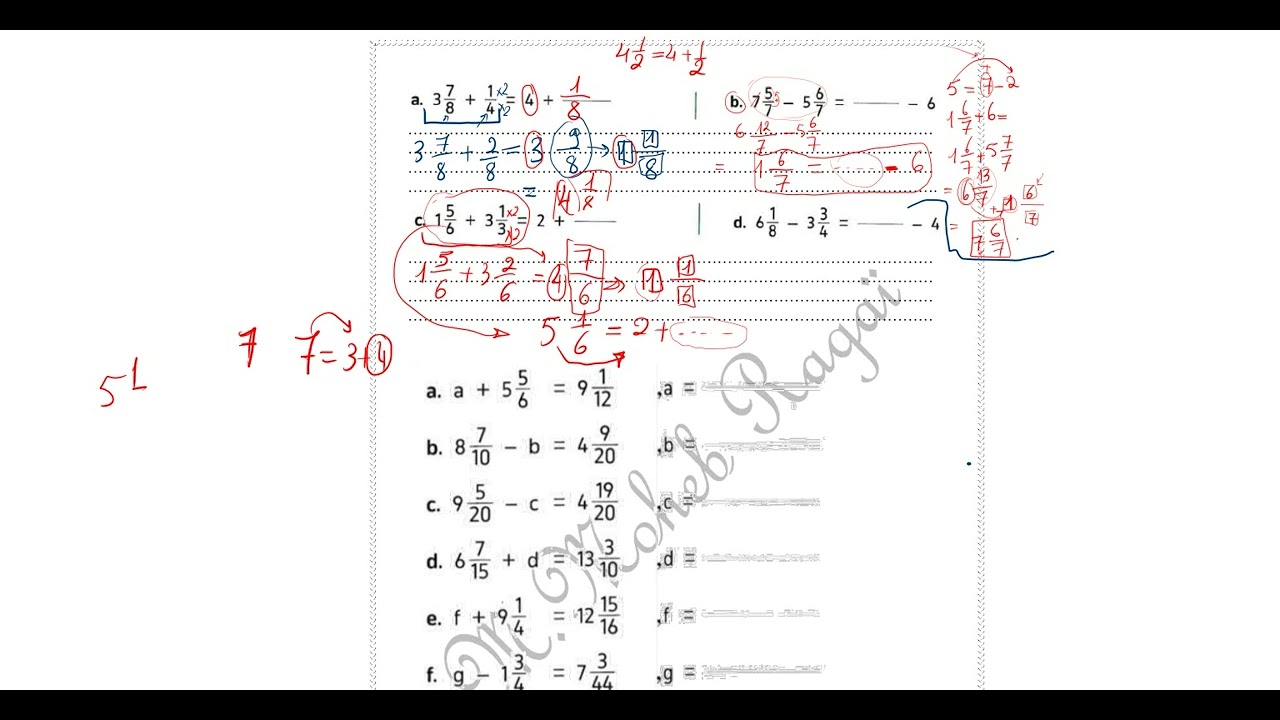 4 1/2 = 4 + 1/2
a. 3 7/8 + 1/4 ×2 ×2 = 4 + 1/8
3 7/8 + 2/8 = 3 9/8 → 1 1/8
= 4 1/8
b. 7 5/7 - 5 6/7 = ____ - 6
6 12/7 - 5 6/7
= 1 6/7 = ...... - 6
5 = 7 - 2
1 6/7 + 6 =
1 6/7 + 5 7/7
= 6 13/7 → 1 6/7
= 7 6/7
c. 1 5/6 + 3 1/3 ×2 ×2 = 2 + ____
1 5/6 + 3 2/6 = 4 7/6 → 1 1/6
5 1/6 = 2 + ......
d. 6 1/8 - 3 3/4 = ____ - 4
7
7 = 3 + 4
5 1
a. a + 5 5/6 = 9 1/12 ,a =
b. 8 7/10 - b = 4 9/20 ,b =
c. 9 5/20 - c = 4 19/20 ,c =
d. 6 7/15 + d = 13 3/10 ,d =
e. f + 9 1/4 = 12 15/16 ,f =
f. g - 1 3/4 = 7 3/44 ,g =
M. Moheb Ragaï